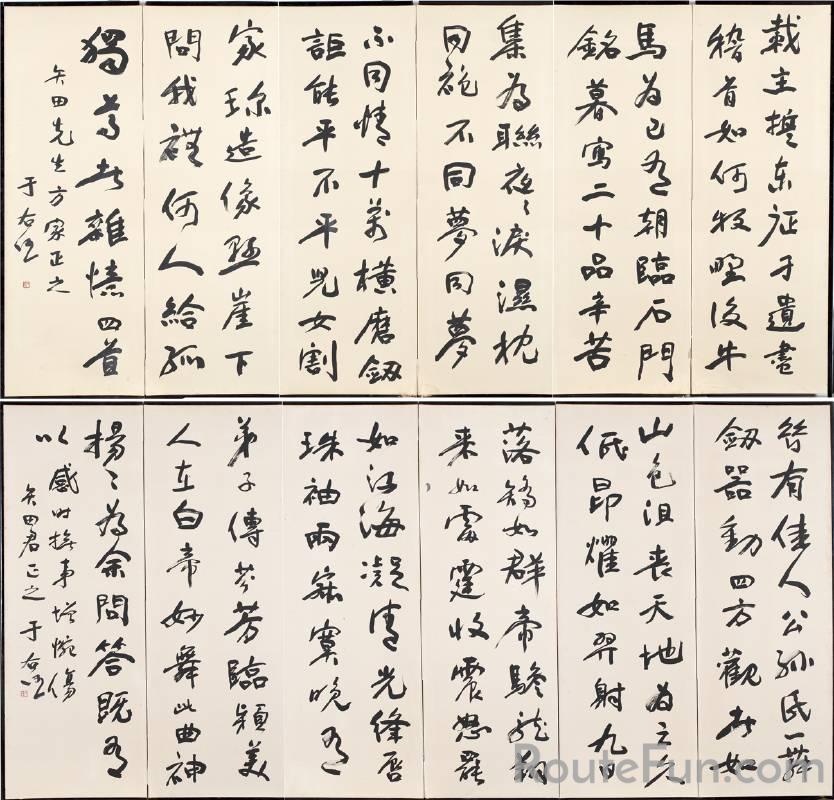 載主誓东征孑遺盡
稽首如何牧野後牛
馬為已有朝臨石門
銘暮寫二十品辛苦
集為聯夜々淚濕枕
同袍不同夢同夢
不同情十萬橫磨劔
詎能平不平兒女割
家珍造像懸崖下
問我禮何人給孤
獨尊者雜憶四首
矢田先生方家正之
于右任
昔有佳人公孫氏一舞
劔器動四方觀者如
山色沮喪天地為之久
低昂耀如羿射九日
落矯如群帝驂龍翔
来如雷霆收震怒罷
如江海凝清光絳唇
珠袖兩寂寞晚有
弟子傳芬芳臨潁美
人在白帝妙舞此曲神
揚々為余問答既有
以感时撫事增惋傷
矢田君正之 于右任
RouteFun.com